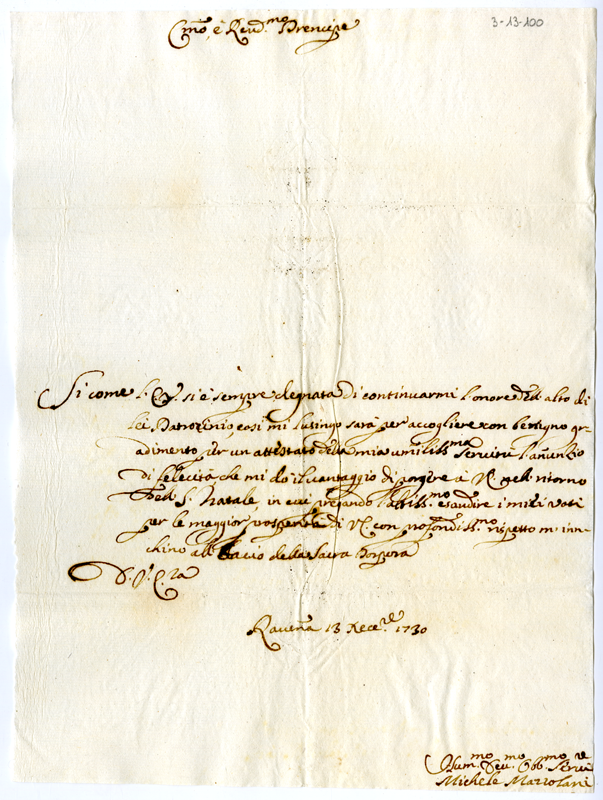 3-13-100
Emo, e Revd.mo Prencipe
Si come l'E.V. si è sempre degnata di continuarmi l'onore dell' alto di
lei Patrocinio, così mi lusingo sarà per accogliere con benigno gr-
adimento per un attestato della mia umiliss.ma servitù l'anunzio
di felicità che mi do il vantaggio di porgere à V.E. nel ritorno
del S. Natale, in cui pregando l'Altiss.mo esaudire i miei voti
per le maggior prosperità di V.E. con profondiss.mo rispetto m' inn-
chino all Bacio della Sacra Porpora
D. V. E.za
Ravena 13 Dece.re 1730
Hum.mo Dev.mo Obb.mo Serv.re
Michele Marzolani